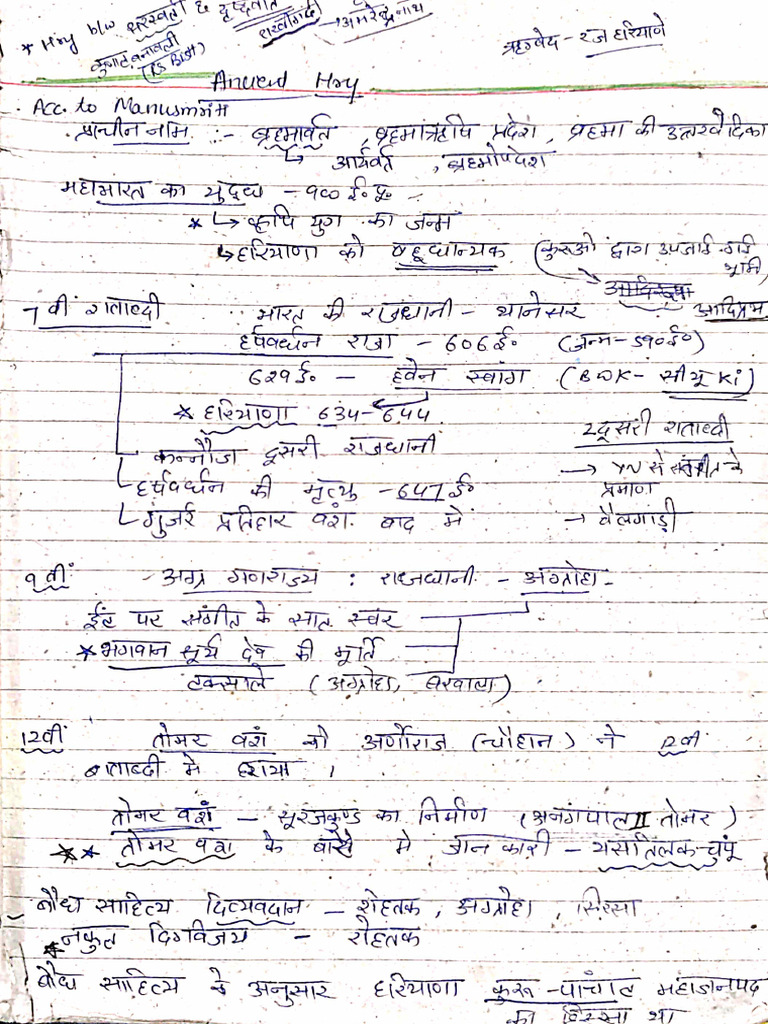 * Hry b/w सरस्वती & दृष्दवती
राखीगढ़ी → अमरेन्द्रनाथ
ऋग्वेद - रज हरियाणे
बनावली
(RS Bisht)
Ancient Hry
Acc. to Manusmriti
प्राचीन नाम :- ब्रह्मावर्त, ब्रह्मऋषि प्रदेश, ब्रह्मा की उत्तरवेदिका
↳ आर्यवर्त, ब्रह्मोपदेश
महाभारत का युद्ध - 900 ई॰ पू॰
* ↳ कृषि युग का जन्म
↳ हरियाणा को बहुधान्यक (कुरूओं द्वारा उपजाई गई भूमि)
आदिरूपा आदिप्रभ
7 वीं शताब्दी भारत की राजधानी - थानेसर
हर्षवर्धन राजा - 606 ई॰ (जन्म - 590 ई॰)
629 ई॰ - हवेन स्वांग (BOK - सी यू Ki)
* हरियाणा 634-644
कन्नौज दूसरी राजधानी
2 दूसरी शताब्दी
→ YN से संगीत के प्रमाण
→ बैलगाड़ी
हर्षवर्धन की मृत्यु - 647 ई॰
गुर्जर प्रतिहार वंश बाद में
9 वीं - अग्र गणराज्य : राजधानी - अग्रोहा -
ईंट पर संगीत के सात स्वर
* भगवान सूर्य देव की मूर्ति
टकसाले (अग्रोहा, बरवाला)
12वीं तोमर वंश को अर्णोराज (चौहान) ने 12वीं
शताब्दी में हराया।
तोमर वंश - सूरजकुण्ड का निर्माण (अनंगपाल II तोमर)
** तोमर वंश के बारे मे जानकारी - यसातिलक-चुंपू
बौध साहित्य दिव्यवदान - रोहतक, अग्रोहा, सिरसा
* नकुल दिग्विजय - रोहतक
बौध साहित्य के अनुसार हरियाणा कुरू-पांचाल महाजनपद
का हिस्सा था